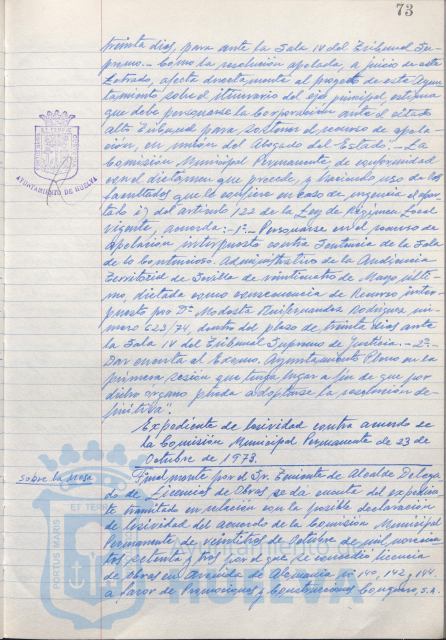 73
treinta dias, para ante la Sala IV del Tribunal Su-
premo.- Como la resolución apelada, a juicio de este
Letrado, afecta directamente al proyecto de este Ayun-
tamiento sobre el itinerario del eje principal, estima
que debe personarse la Corporación ante el citado
alto Tribunal para sostener el recurso de apela-
ción, en unión del Abogado del Estado".- La
Comisión Municipal Permanente de conformidad
con el dictamen que precede, y haciendo uso de las
facultades que le confiere en caso de urgencia el apar-
tado i) del artículo 122 de la Ley de Régimen Local
vigente, acuerda: - 1º.- Personarse en el recurso de
apelación interpuesto contra Sentencia de la Sala
de lo Contencioso-Administrativo de la Audiencia
Territorial de Sevilla de veinticuatro de Mayo últi-
mo, dictada como consecuencia de Recurso inter-
puesto por Dª Modesta Ruifernandez Rodriguez nú-
mero 623/74, dentro del plazo de treinta dias ante
la Sala IV del Tribunal Supremo de Justicia.- 2º.-
Dar cuenta al Excmo. Ayuntamiento Pleno en la
primera sesión que tenga lugar a fin de que por
dicho organo pueda adoptarse la resolución de-
finitiva.
Expediente de lesividad contra acuerdo de
la Comisión Municipal Permanente de 23 de
Octubre de 1973.
Sobre la mesa
Finalmente por el Sr. Teniente de Alcalde Delega-
do de Licencias de Obras se da cuenta del expedien-
te tramitado en relación con la posible declaración
de lesividad del acuerdo de la Comisión Municipal
Permanente de veintitres de Octubre de mil novecien-
tos setenta y tres por el que se concedió licencia
de obras en Avenida de Alemania nº 140, 142 y 144.
a favor de Promociones y Construcciones S.A.
AYUNTAMIENTO DE HUELVA
PORTUS MARIS ET TERRAE
Ayuntamiento
HUELVA